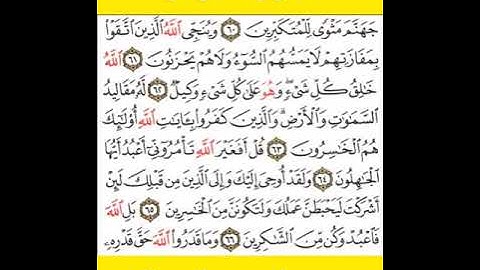 جَهَنَّمَ مَثْوًى لِّلْمُتَكَبِّرِينَ ٦٠ وَيُنَجِّى اللَّهُ الَّذِينَ اتَّقَوْا
بِمَفَازَتِهِمْ لَا يَمَسُّهُمُ السُّوٓءُ وَلَا هُمْ يَحْزَنُونَ ٦١ اللَّهُ
خَالِقُ كُلِّ شَىْءٍ وَهُوَ عَلَىٰ كُلِّ شَىْءٍ وَكِيلٌ ٦٢ لَّهُ مَقَالِيدُ
السَّمَاوَاتِ وَالْأَرْضِ وَالَّذِينَ كَفَرُوا بِـَٔايَاتِ اللَّهِ أُولَٰٓئِكَ
هُمُ الْخَاسِرُونَ ٦٣ قُلْ أَفَغَيْرَ اللَّهِ تَأْمُرُوٓنِّىٓ أَعْبُدُ أَيُّهَا
الْجَاهِلُونَ ٦٤ وَلَقَدْ أُوحِىَ إِلَيْكَ وَإِلَى الَّذِينَ مِن قَبْلِكَ لَئِنْ
أَشْرَكْتَ لَيَحْبَطَنَّ عَمَلُكَ وَلَتَكُونَنَّ مِنَ الْخَاسِرِينَ ٦٥ بَلِ اللَّهَ
فَاعْبُدْ وَكُن مِّنَ الشَّاكِرِينَ ٦٦ وَمَا قَدَرُوا اللَّهَ حَقَّ قَدْرِهِ